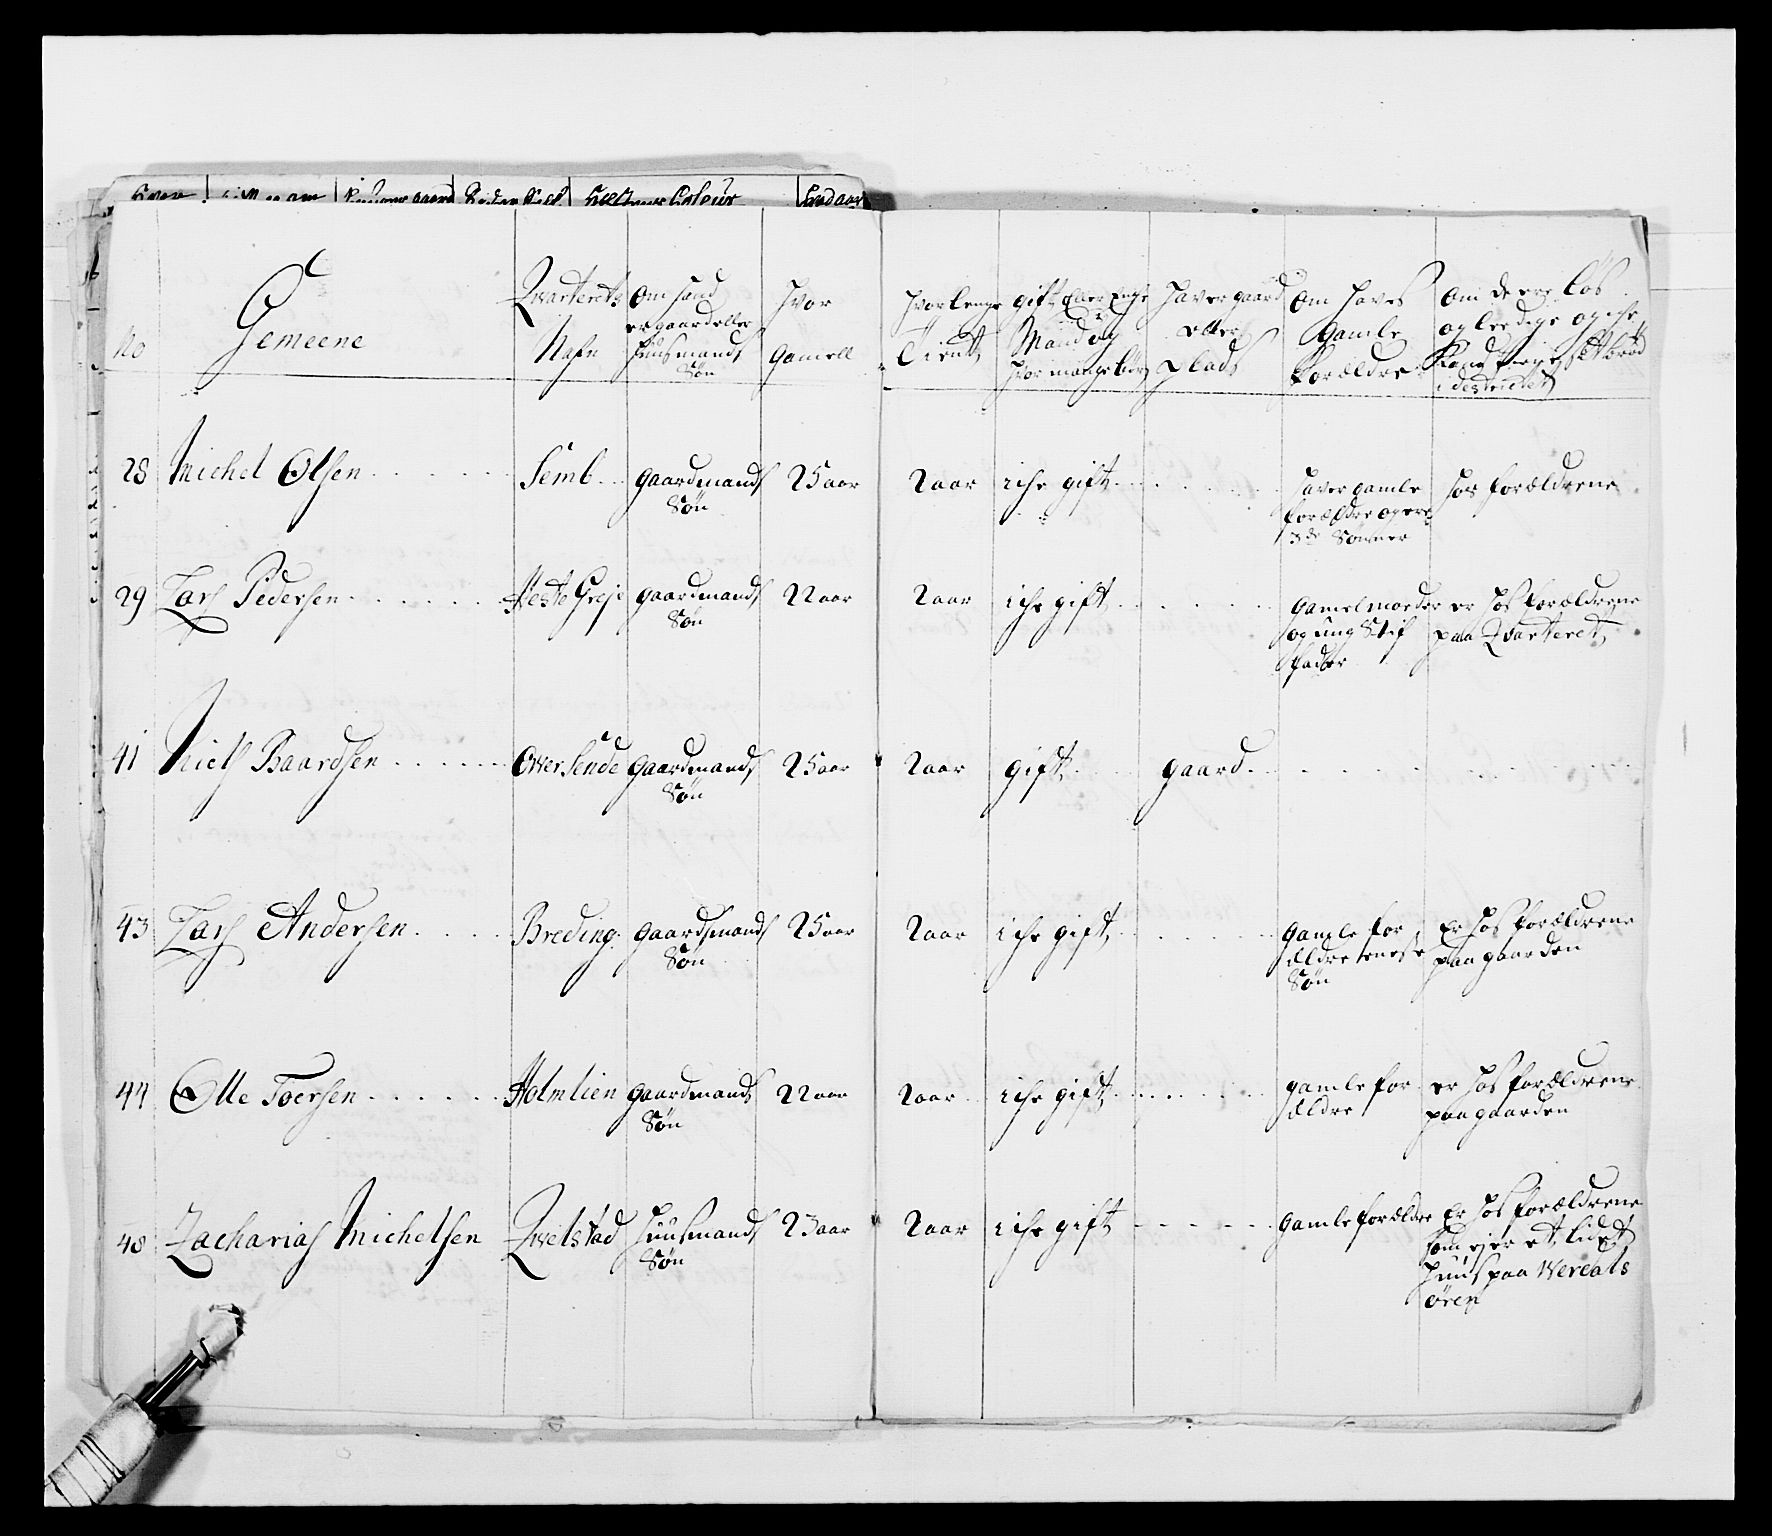 No Gemeene Qvarterets Nafn Om hand er gaard eller huusmands Søn hvor gamell hvorlenge Tient gift Eller Enche Mand og hvor mange børn haver gaard eller plads Om haves gamle Forældre Om de ere løs og leedige og iche Kand fortiene sit brød i destrictet
28 Michel Olsen Semb gaardmands Søn 25 aar 2 aar iche gift haver gamle forældre og ere 3de Sønner hos forældrene
29 Lars Pedersen Næste Greje gaardmands Søn 22 aar 2 aar iche gift gamel moder og ung Stif fader er hos forældrene paa Qvarteret
41 Niels Baardsen Over Sende gaardmands Søn 25 aar 2 aar gift gaard
43 Lars Andersen Breding gaardsmands Søn 25 aar 2 aar iche gift gamle for ældre eneste Søn Er hos forældrene paa gaarden
44 Olle Toersen Holmlien gaardmands Søn 22 aar 2 aar iche gift gamle for ældre er hos forældrene paa gaarden
48 Zacharias Michelsen Qvelstad huusmands Søn 23 aar 2 aar iche gift gamle forældre Er hos forældrene som ejer et lidet huus paa Werdals øren